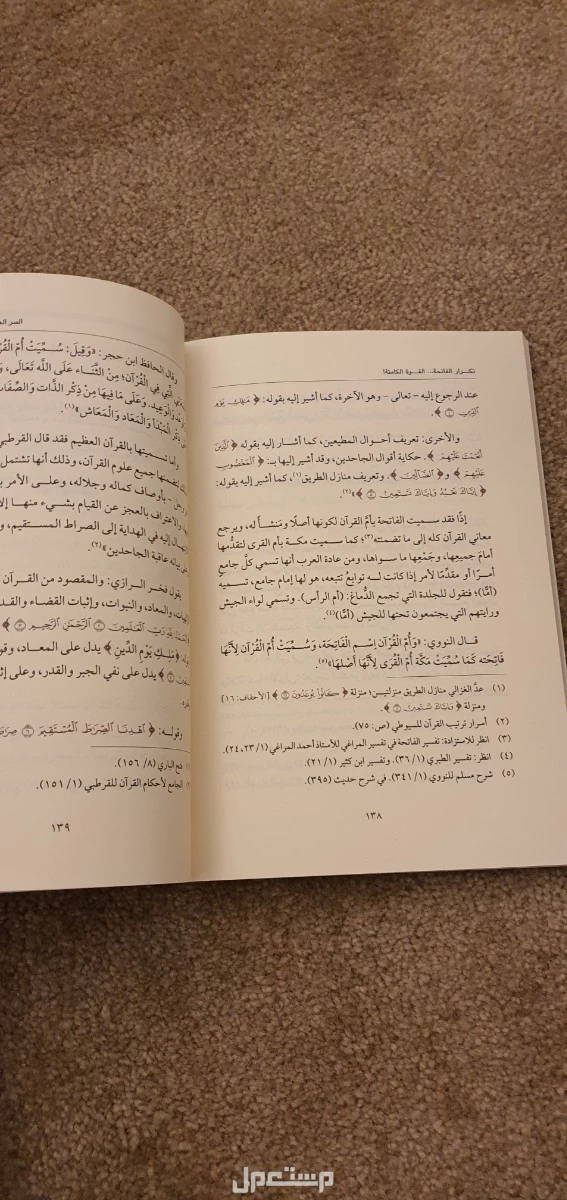 تكرار الفاتحة... القوة الكامنة!
عند الرجوع إليه - تعالى - وهو الآخرة، كما أشير إليه بقوله: ﴿مَلِكِ يَوْمِ
ٱلدِّينِ﴾.
والأخرى: تعريف أحوال المطيعين، كما أشار إليه بقوله ﴿ٱلَّذِينَ
أَنْعَمْتَ عَلَيْهِمْ﴾. حكاية أقوال الجاحدين، وقد أشير إليها بـ: ﴿ٱلْمَغْضُوبِ
عَلَيْهِمْ﴾ و﴿ٱلضَّآلِّينَ﴾. وتعريف منازل الطريق(١)، كما أشير إليه بقوله:
﴿إِيَّاكَ نَعْبُدُ وَإِيَّاكَ نَسْتَعِينُ﴾(٢).
إذًا فقد سميت الفاتحة بأم القرآن لكونها أصلًا ومَنشأً له، ويرجع
معاني القرآن كله إلى ما تضمنته(٣)؛ كما سميت مكة بأم القرى لتقدُّمها
أمامَ جميعِها، وجَمْعِها ما سواها، ومن عادة العرب أنها تسمي كلَّ جامعٍ
أمرًا أو مقدَّمًا لأمر إذا كانت له توابعُ تتبعه، هو لها إمام جامع، تسميه
(أمًّا)؛ فتقول للجلدة التي تجمع الدُّماغ: (أم الرأس). وتسمي لواء الجيش
ورايتهم التي يجتمعون تحتها للجيش (أمًّا)(٤).
قال النووي: «وَأُمُّ الْقُرْآنِ اِسْم الْفَاتِحَة، وَسُمِّيَتْ أُمّ الْقُرْآن لِأَنَّهَا
فَاتِحَته كَمَا سُمِّيَتْ مَكَّة أُمّ الْقُرَى لِأَنَّهَا أَصْلهَا»(٥).
(١) عدَّ الغزالي منازل الطريق منزلتين: منزلة ﴿كَانُوا۟ يُوعَدُونَ﴾ [الأحقاف: ١٦]
ومنزلة ﴿وَإِيَّاكَ نَسْتَعِينُ﴾.
(٢) أسرار ترتيب القرآن للسيوطي (ص: ٧٥).
(٣) انظر للاستزادة: تفسير الفاتحة في تفسير المراغي للأستاذ أحمد المراغي (٢٣/١، ٢٤).
(٤) انظر: تفسير الطبري (٣٦/١)، وتفسير ابن كثير (٢١/١).
(٥) شرح مسلم للنووي (٣٤١/١)، في شرح حديث (٣٩٥).
١٣٨
السر
وقال الحافظ ابن حجر: «وَقِيلَ: سُمِّيَتْ أُمّ
الَّتِي فِي الْقُرْآنِ؛ مِنْ الثَّنَاء عَلَى اللَّه تَعَالَى،
وَعَلَى مَا فِيهَا مِنْ ذِكْر الذَّات وَالصِّفَات
ذِكْر الْمَبْدَأ وَالْمَعَاد وَالْمَعَاش»(١).
وأما تسميتها بالقرآن العظيم فقد قال القرطبي
لتضمنها جميع علوم القرآن، وذلك أنها تشتمل
وجل - بأوصاف كماله وجلاله، وعلى الأمر
والاعتراف بالعجز عن القيام بشيء منها إلا
إليه في الهداية إلى الصراط المستقيم،
بيانه عاقبة الجاحدين»(٢).
يقول فخر الرازي: والمقصود من القرآن
والمعاد، والنبوات، وإثبات القضاء
رَبِّ ٱلْعَٰلَمِينَ ٱلرَّحْمَٰنِ ٱلرَّحِيمِ
﴿مَٰلِكِ يَوْمِ ٱلدِّينِ﴾ يدل على المعاد،
يدل على نفي الجبر والقدر، وعلى
وقوله: ﴿ٱهْدِنَا ٱلصِّرَٰطَ ٱلْمُسْتَقِيمَ
فتح الباري (٨/ ١٥٦).
الجامع لأحكام القرآن للقرطبي (١/ ١٥١)
١٣٩
مستعمل